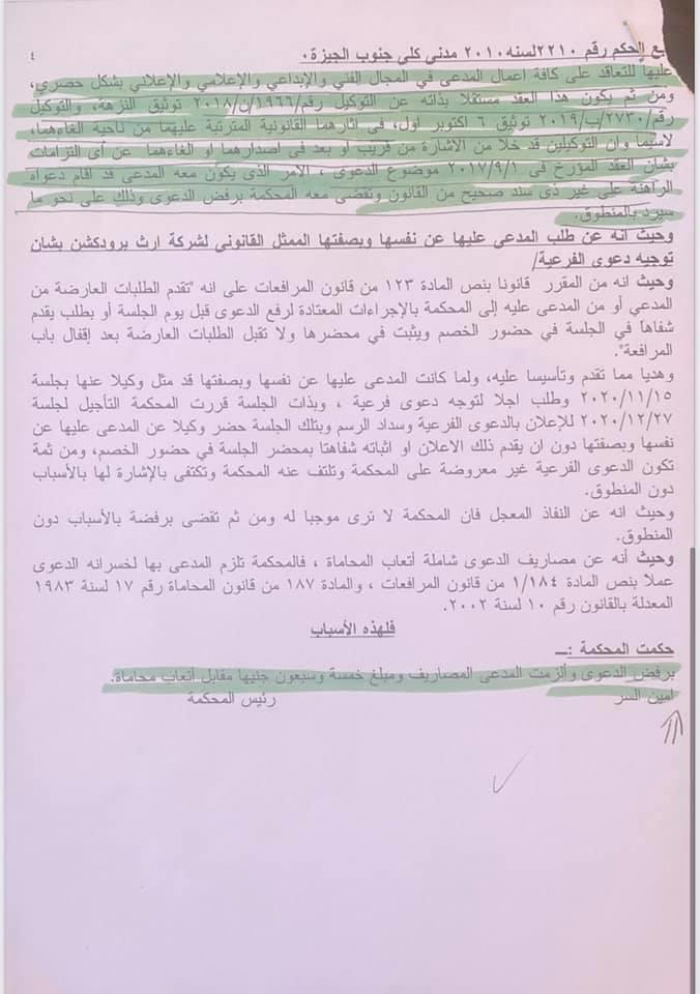 ع الحكم رقم ٢٢١٠ لسنه ٢٠١٠ مدنى كلى جنوب الجيزة٠
٤
عليها للتعاقد على كافة اعمال المدعى في المجال الفني والإبداعي والإعلامي والإعلاني بشكل حصري،
ومن ثم يكون هذا العقد مستقلا بذاته عن التوكيل رقم/١٩٦٦/ن/٢٠١٨ توثيق النزهة، والتوكيل
رقم/٢٧٣٠/ب/٢٠١٩ توثيق ٦ اكتوبر اول، فى اثارهما القانونية المترتبة عليهما من ناحيه الغاءهما،
لاسيما وان التوكيلين قد خلا من الاشارة من قريب او بعد فى اصدارهما او الغاءهما عن أى التزامات
بشان العقد المؤرخ فى ٢٠١٧/٩/١ موضوع الدعوى ، الامر الذى يكون معه المدعى قد اقام دعواه
الراهنة على غير ذى سند صحيح من القانون وتقضى معه المحكمة برفض الدعوى وذلك على نحو ما
سيرد بالمنطوق.
وحيث انه عن طلب المدعى عليها عن نفسها وبصفتها الممثل القانوني لشركة ارث برودكشن بشان
توجيه دعوى الفرعية/
وحيث انه من المقرر قانونا بنص المادة ١٢٣ من قانون المرافعات على انه "تقدم الطلبات العارضة من
المدعي أو من المدعى عليه إلى المحكمة بالإجراءات المعتادة لرفع الدعوى قبل يوم الجلسة أو بطلب يقدم
شفاهاً في الجلسة في حضور الخصم ويثبت في محضرها ولا تقبل الطلبات العارضة بعد إقفال باب
المرافعة".
وهديا مما تقدم وتأسيسا عليه، ولما كانت المدعى عليها عن نفسها وبصفتها قد مثل وكيلا عنها بجلسة
٢٠٢٠/١١/١٥ وطلب اجلا لتوجه دعوى فرعية ، وبذات الجلسة قررت المحكمة التأجيل لجلسة
٢٠٢٠/١٢/٢٧ للإعلان بالدعوى الفرعية وسداد الرسم وبتلك الجلسة حضر وكيلا عن المدعى عليها عن
نفسها وبصفتها دون ان يقدم ذلك الاعلان او اثباته شفاهتا بمحضر الجلسة في حضور الخصم، ومن ثمة
تكون الدعوى الفرعية غير معروضة على المحكمة وتلتفت عنه المحكمة وتكتفى بالإشارة لها بالأسباب
دون المنطوق.
وحيث انه عن النفاذ المعجل فان المحكمة لا نرى موجبا له ومن ثم تقضى برفضة بالأسباب دون
المنطوق.
وحيث أنه عن مصاريف الدعوى شاملة أتعاب المحاماة ، فالمحكمة تلزم المدعى بها لخسرانه الدعوى
عملا بنص المادة ١/١٨٤ من قانون المرافعات ، والمادة ١٨٧ من قانون المحاماة رقم ١٧ لسنة ١٩٨٣
المعدلة بالقانون رقم ١٠ لسنة ٢٠٠٢.
فلهذه الأسباب
حكمت المحكمة :ــ
برفض الدعوى وألزمت المدعى المصاريف ومبلغ خمسة وسبعون جنيها مقابل أتعاب محاماة.
امين السر
رئيس المحكمة